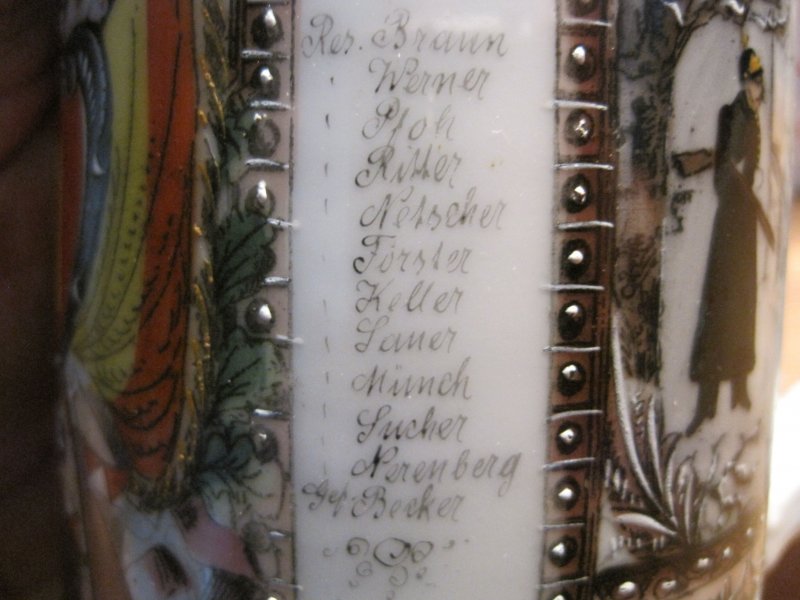 Res. Braun
" Werner
" Pfoh
" Ritter
" Netscher
" Förster
" Keller
" Lauer
" Münch
" Sucher
" Nerenberg
Gef. Becker